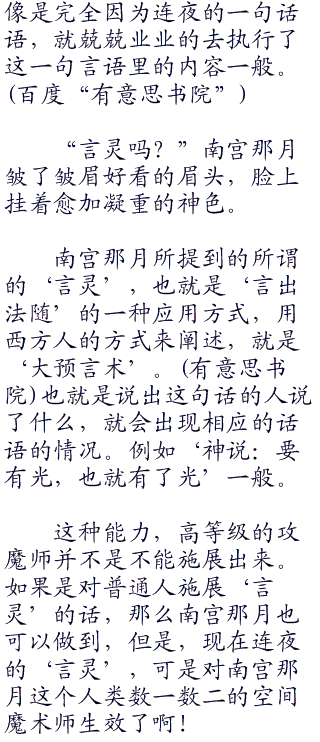 像是完全因为连夜的一句话
语，就兢兢业业的去执行了
这一句言语里的内容一般。
(百度“有意思书院”)
“言灵吗？”南宫那月
皱了皱眉好看的眉头，脸上
挂着愈加凝重的神色。
南宫那月所提到的所谓
的‘言灵’，也就是‘言出
法随’的一种应用方式，用
西方人的方式来阐述，就是
‘大预言术’。(有意思书
院)也就是说出这句话的人说
了什么，就会出现相应的话
语的情况。例如‘神说：要
有光，也就有了光’一般。
这种能力，高等级的攻
魔师并不是不能施展出来。
如果是对普通人施展‘言
灵’的话，那么南宫那月也
可以做到，但是，现在连夜
的‘言灵’，可是对南宫那
月这个人类数一数二的空间
魔术师生效了啊！